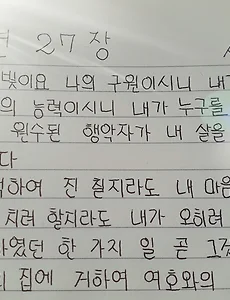 27 장
빛이요 나의 구원이시니 내가
의 능력이시니 내가 누구를
원수된 행악자가 내 살을
다
하여 진 칠지라도 내 마음
치려 할지라도 내가 오히려
였던 한 가지 일 곧 그것
집에 거하여 여호와의